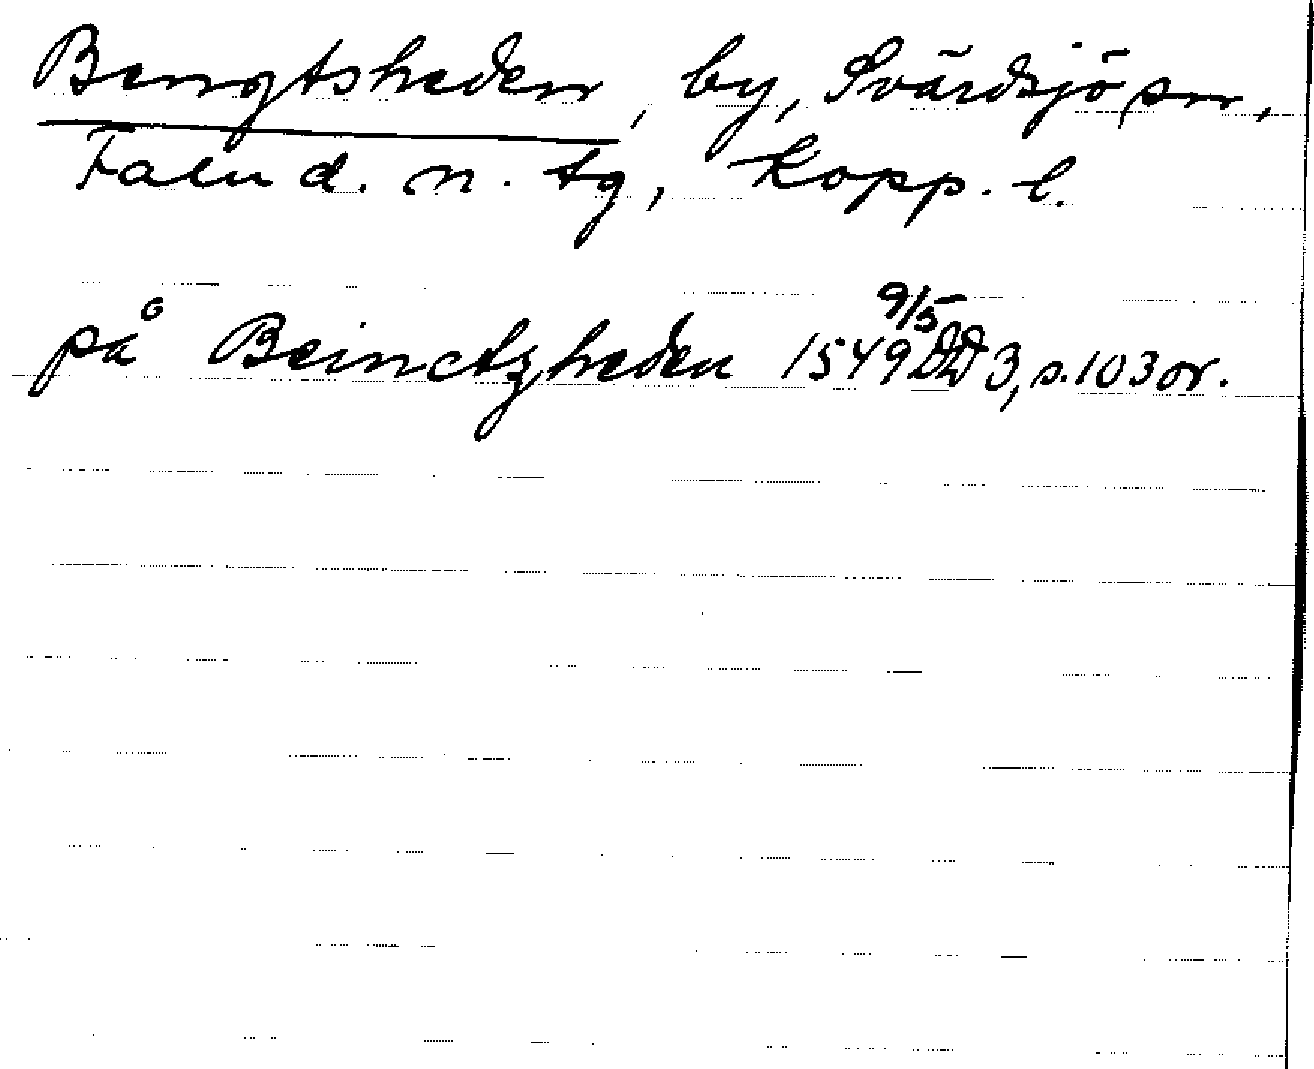 Bengtsheden, by, Svärdsjö sn,
Falu d. n. tg, Kopp. l.
på Beinctzheden 1549 9/5 DD 3, s. 103 or.